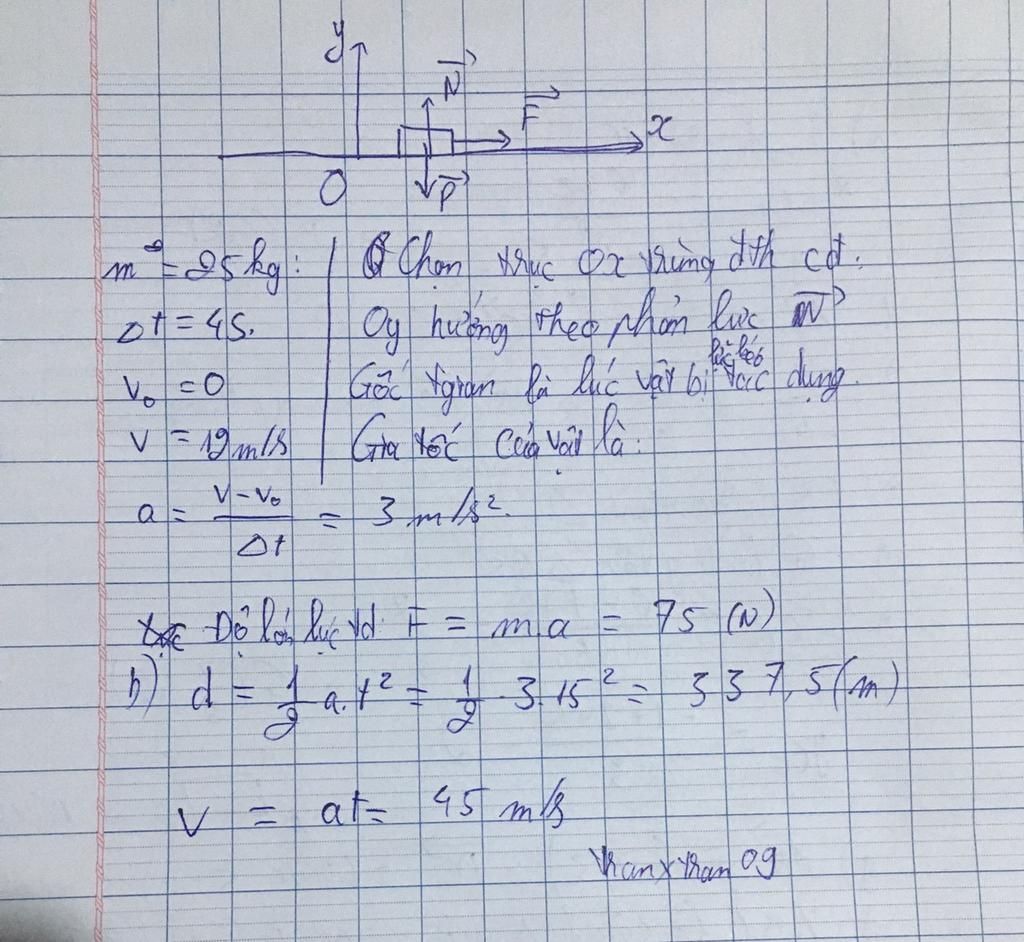 y
N⃗
F⃗
x
O
P⃗
m = 25 kg:
Δt = 4s.
v₀ = 0
v = 12 m/s
Chọn trục Ox trùng đth cđ.
Oy hướng theo phản lực N⃗
Gốc tgian là lúc vật bị lực kéo tác dụng.
Gia tốc của vật là:
a = (v - v₀)/Δt = 3 m/s².
Độ lớn lực td: F = m.a = 75 (N)
b) d = 1/2 a.t² = 1/2 . 3.15² = 337,5 (m)
v = at = 45 m/s
tranxtran09